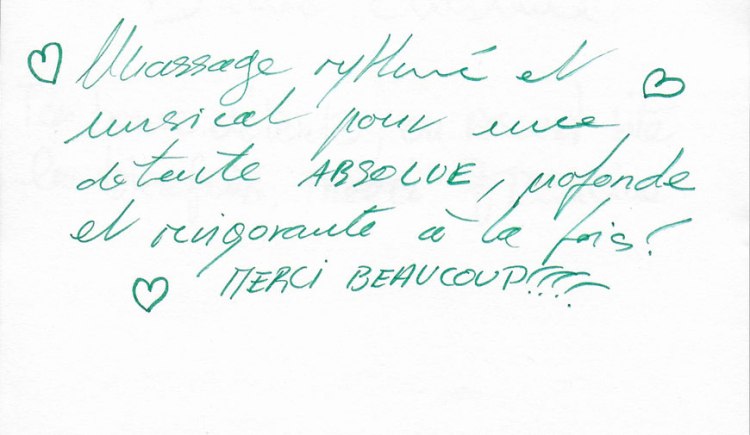 Massage rythmé et
musical pour une
détente ABSOLUE, profonde
et revigorante à la fois!
MERCI BEAUCOUP!!!!